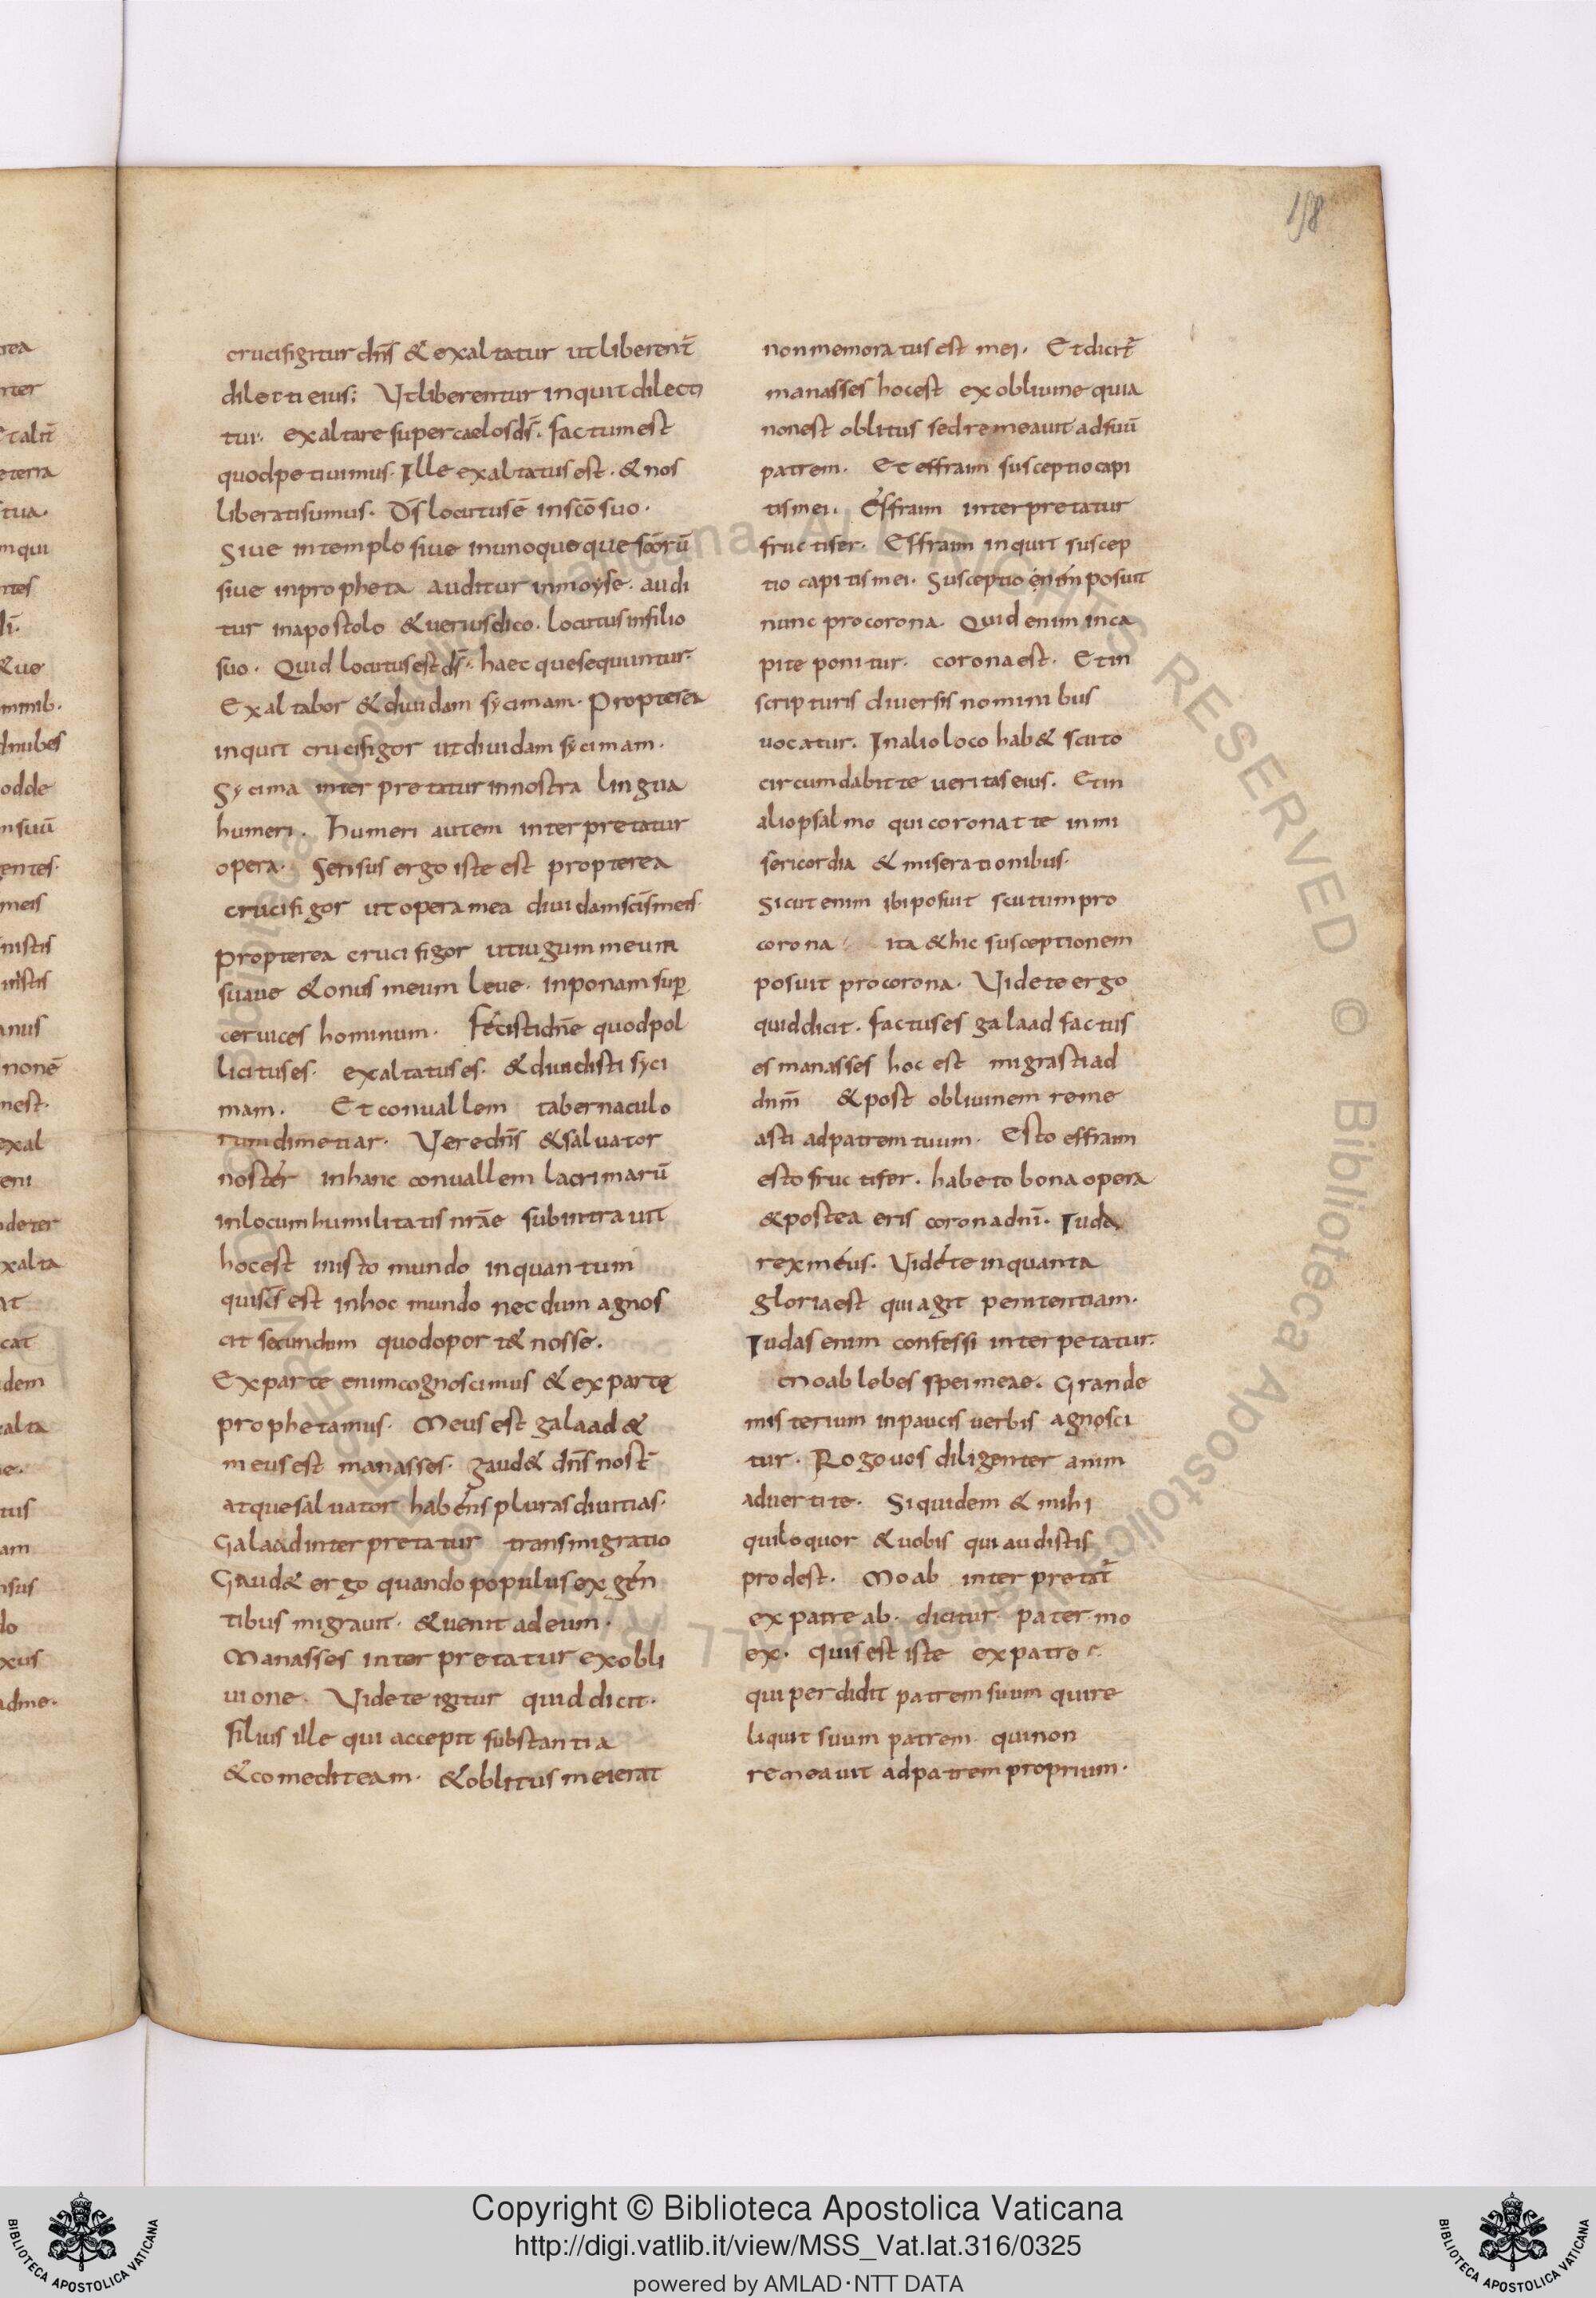 158
crucifigitur dn̄s & exaltatur ut liberent̄
dilecti eius; Ut liberentur inquit dilecti
tui· exaltare super caelos d̄s· factum est
quod petiuimus· Ille exaltatus est· & nos
liberati sumus· D̄s locutus ē in sc̄o suo·
Siue in templo siue in unoqueque sc̄orū
siue in propheta auditur in moyse· audi
tur in apostolo & uerius dico· locutus in filio
suo· Quid locutus est d̄s· haec que sequuntur·
Exaltabor & diuidam sycimam· Propterea
inquit crucifigor ut diuidam sycimam·
Sycima interpretatur in nostra lingua
humeri· humeri autem interpretatur
opera· Sensus ergo iste est propterea
crucifigor ut opera mea diuidam sc̄is meis·
propterea crucifigor ut iugum meum
suaue & onus meum leue· inponam sup̄
ceruices hominum· fecisti dn̄e quod pol
licitus es· exaltatus es· & diuidisti syci
mam· Et conuallem tabernaculo
rum dimetiar· Vere dn̄s & saluator
noster in hanc conuallem lacrimarū
in locum humilitatis nr̄ae subintrauit
hoc est in isto mundo in quantum
quis c̄s est in hoc mundo necdum agnos
cit secundum quod oport& nosse·
Ex parte enim cognoscimus & ex parte
prophetamus· Meus est galaad &
meus est manasses· gaud& dn̄s nost̄
atque saluator habens pluras diuitias·
Galaad interpretatur transmigratio
Gaud& ergo quando populus ex gen
tibus migrauit· & uenit ad eum·
Manasses interpretatur ex obli
uione· Videte igitur quid dicit·
filius ille qui accepit substantia
& comedit eam· & oblitus mei erat
non memoratus est mei· Et dicit̄
manasses hoc est ex obliuine quia
non est oblitus sed remeauit ad suū
patrem· Et effraim susceptio capi
tis mei· Effraim interpretatur
fructifer· Effraim inquit suscep
tio capitis mei· Susceptio enim posuit
nunc pro corona· Quid enim in ca
pite ponitur· corona est· Et in
scripturis diuersis nominibus
uocatur· In alio loco hab& scuto
circumdabit te ueritas eius· Et in
alio psalmo qui coronat te in mi
sericordia & miserationibus·
Sicut enim ibi posuit scutum pro
corona ita & hic susceptionem
posuit pro corona· Videte ergo
quid dicit· factus es galaad factus
es manasses hoc est migrasti ad
dnm̄ & post obliuinem reme
asti ad patrem tuum· Esto effraim
esto fructifer· habeto bona opera
& postea eris corona dnī· Iuda
rex meus· Videte in quanta
gloria est qui agit penitentiam·
Iudas enim confessi interpetatur·
Moab lebes spei meae· Grande
misterium in paucis uerbis agnosci
tur· Rogo uos diligenter anim
aduertite· Siquidem & mihi
qui loquor & uobis qui audistis
prodest· Moab interpretat̄
ex patre ab· dicitur· pater· mo
ex· quis est iste ex patre
qui perdidit patrem suum qui re
liquit suum patrem qui non
remeauit ad patrem proprium·
Copyright © Biblioteca Apostolica Vaticana
http://digi.vatlib.it/view/MSS_Vat.lat.316/0325
powered by AMLAD·NTT DATA